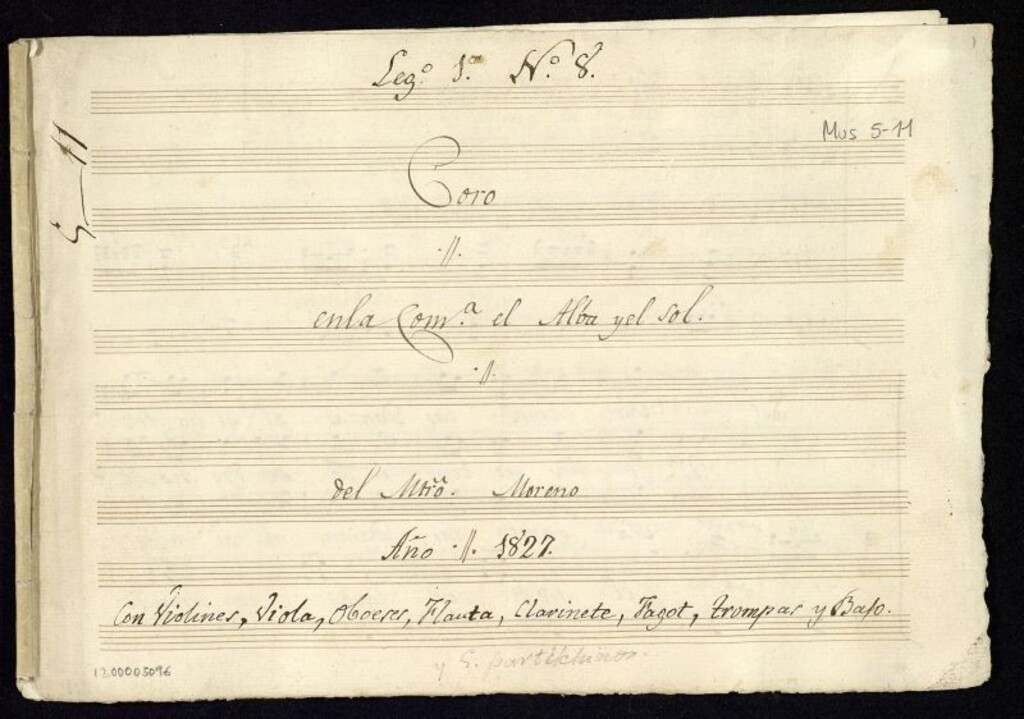 Leg.º 1.º N.º 8.
Mus 5-11
5-11
Coro
enla Com.ª el Alba yel sol.
del Mtrõ. Moreno
Año .//. 1827.
Con Violines, Viola, Oboeses, Flauta, Clarinete, Fagot, trompas y Bajo.
y
1200003096